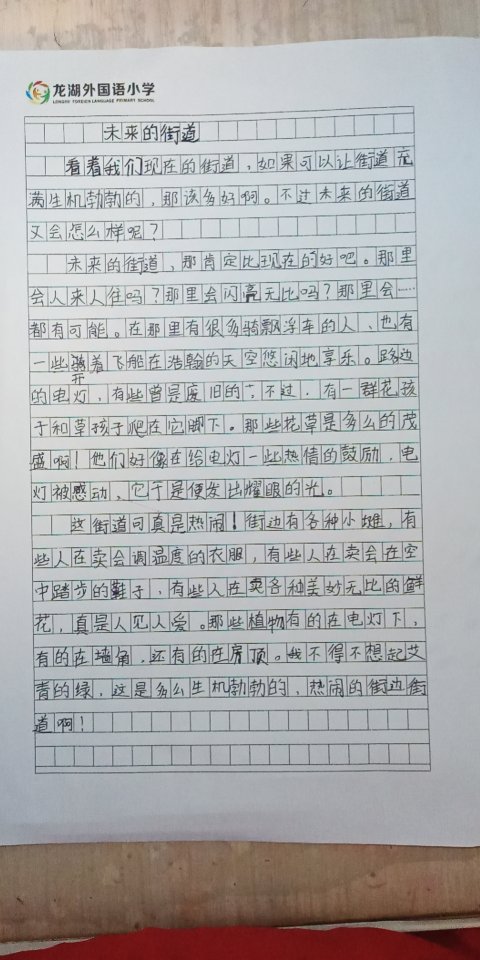 龙湖外国语小学
LONGHU FOREIGN LANGUAGE PRIMARY SCHOOL
未来的街道
看着我们现在的街道，如果可以让街道充
满生机勃勃的，那该多好啊。不过未来的街道
又会怎么样呢？
未来的街道，那肯定比现在的好吧。那里
会人来人往吗？那里会闪亮无比吗？那里会……
都有可能。在那里有很多骑飘浮车的人、也有
一些开着飞船在浩翰的天空悠闲地享乐。路边
的电灯，有些曾是废旧的，不过，有一群花孩
子和草孩子爬在它脚下。那些花草是多么的茂
盛啊！他们好像在给电灯一些热情的鼓励，电
灯被感动，它于是便发出耀眼的光。
这街道可真是热闹！街边有各种小摊，有
些人在卖会调温度的衣服，有些人在卖会在空
中踏步的鞋子，有些人在卖各种美妙无比的鲜
花，真是人见人爱。那些植物有的在电灯下，
有的在墙角，还有的在房顶。我不得不想起艾
青的绿，这是多么生机勃勃的，热闹的街边街
道啊！